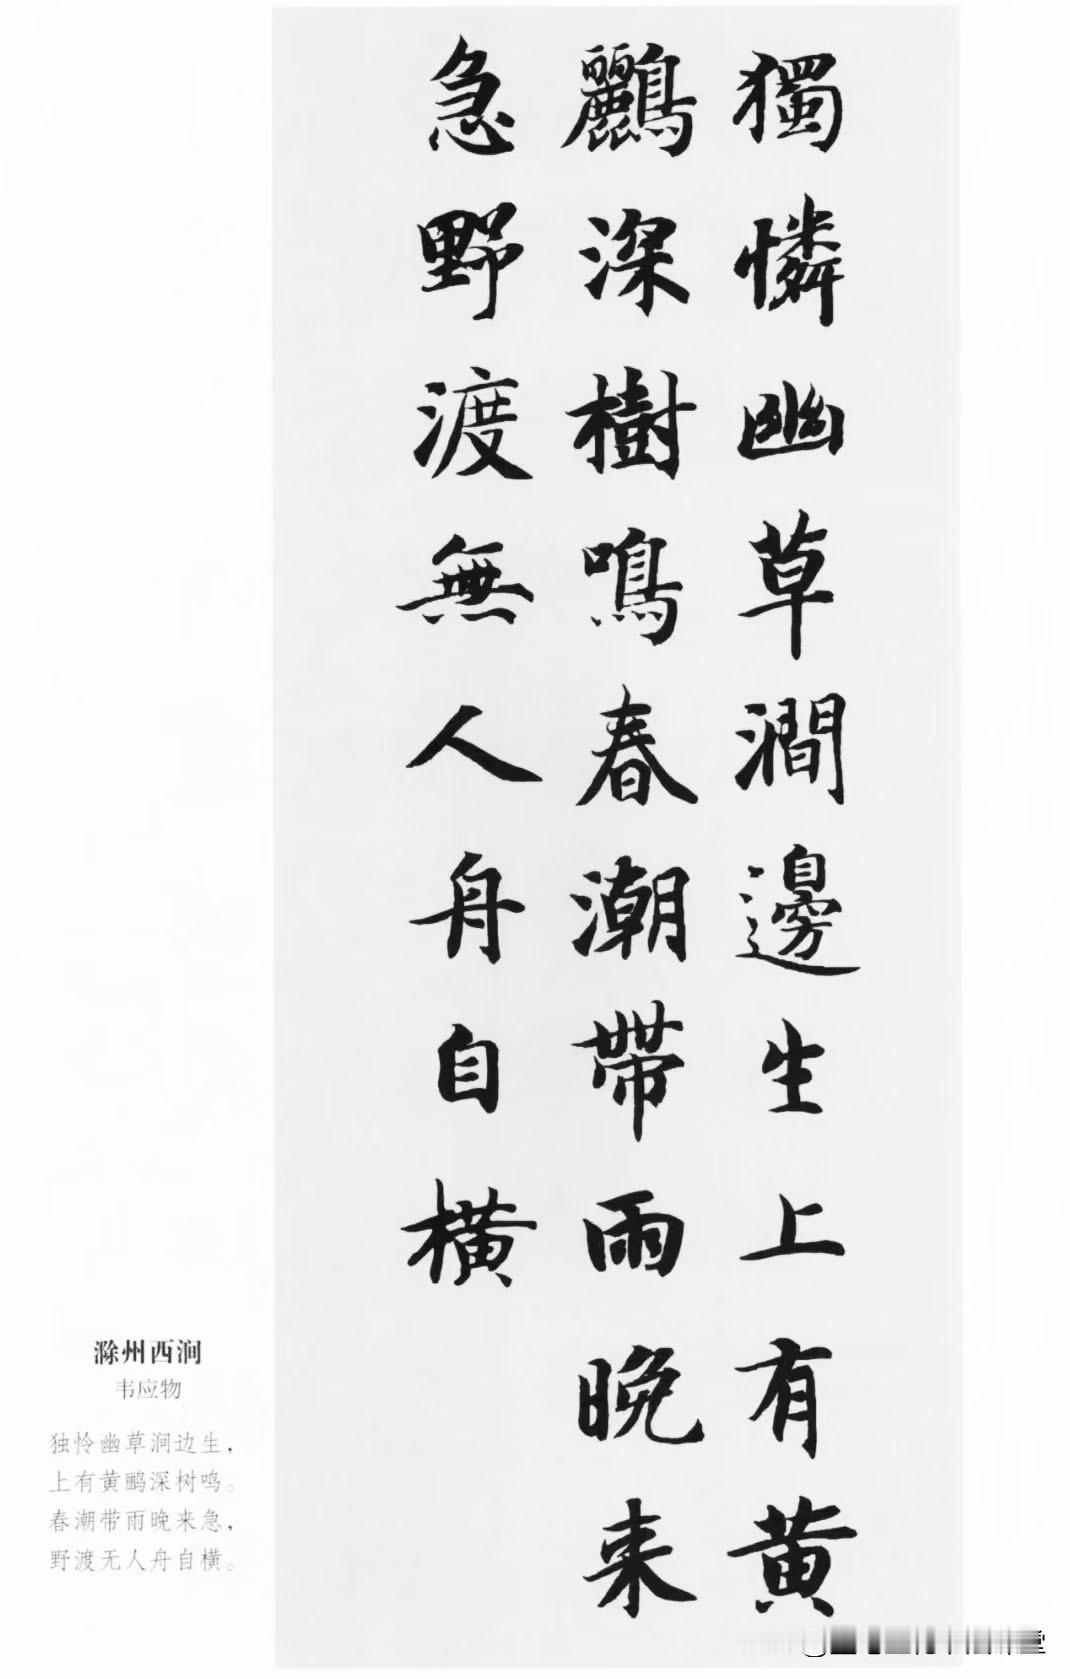 獨憐幽草澗邊生上有黄
鸝深樹鳴春潮帶雨晚来
急野渡無人舟自橫
滁州西涧
韦应物
独怜幽草涧边生，
上有黄鹂深树鸣。
春潮带雨晚来急，
野渡无人舟自横。